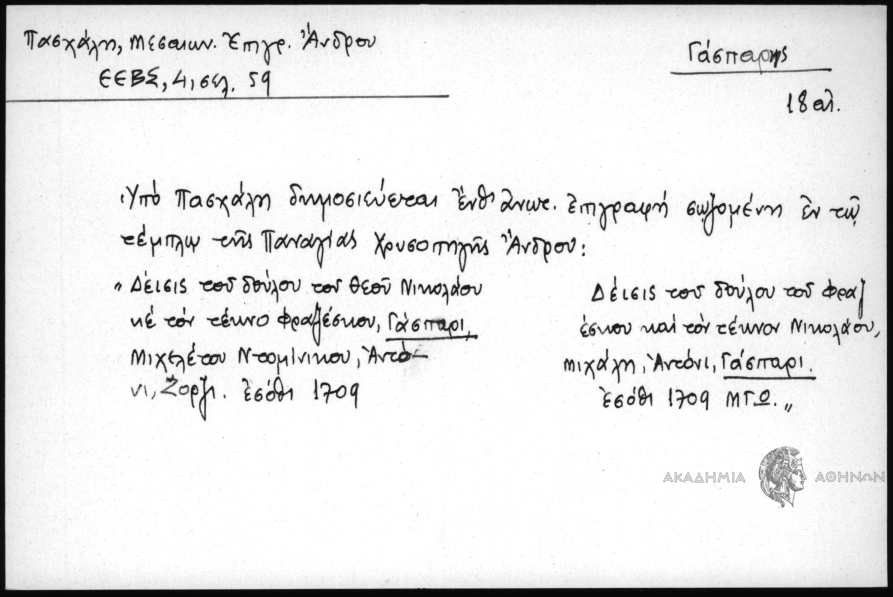 Πασχάλη, Μεσαιων. Ἐπιγρ. Ἄνδρου
ΕΕΒΣ, 4, σελ. 59
Γάσπαρης
18 αἰ.
Ὑπὸ Πασχάλη δημοσιεύεται ἔνθ' ἀνωτ. ἐπιγραφή σῳζομένη ἐν τῷ
τέμπλῳ τῆς Παναγίας Χρυσοπηγῆς Ἄνδρου:
„ Δέισις τοῦ δούλου τοῦ Θεοῦ Νικολάου
κέ τὸν τέκνο Φραζέσκου, Γάσπαρι,
Μιχελέτου Ντομίνικου, Ἀντό-
νι, Ζόρζι. ἐσόθι 1709
Δέισις τοῦ δούλου τοῦ Φραζ
έσκου καὶ τὸν τέκνον Νικολάου,
Μιχάλη, Ἀντόνι, Γάσπαρι.
Ἐσόθι 1709 ΜΓΩ. „
ΑΚΑΔΗΜΙΑ ΑΘΗΝΩΝ